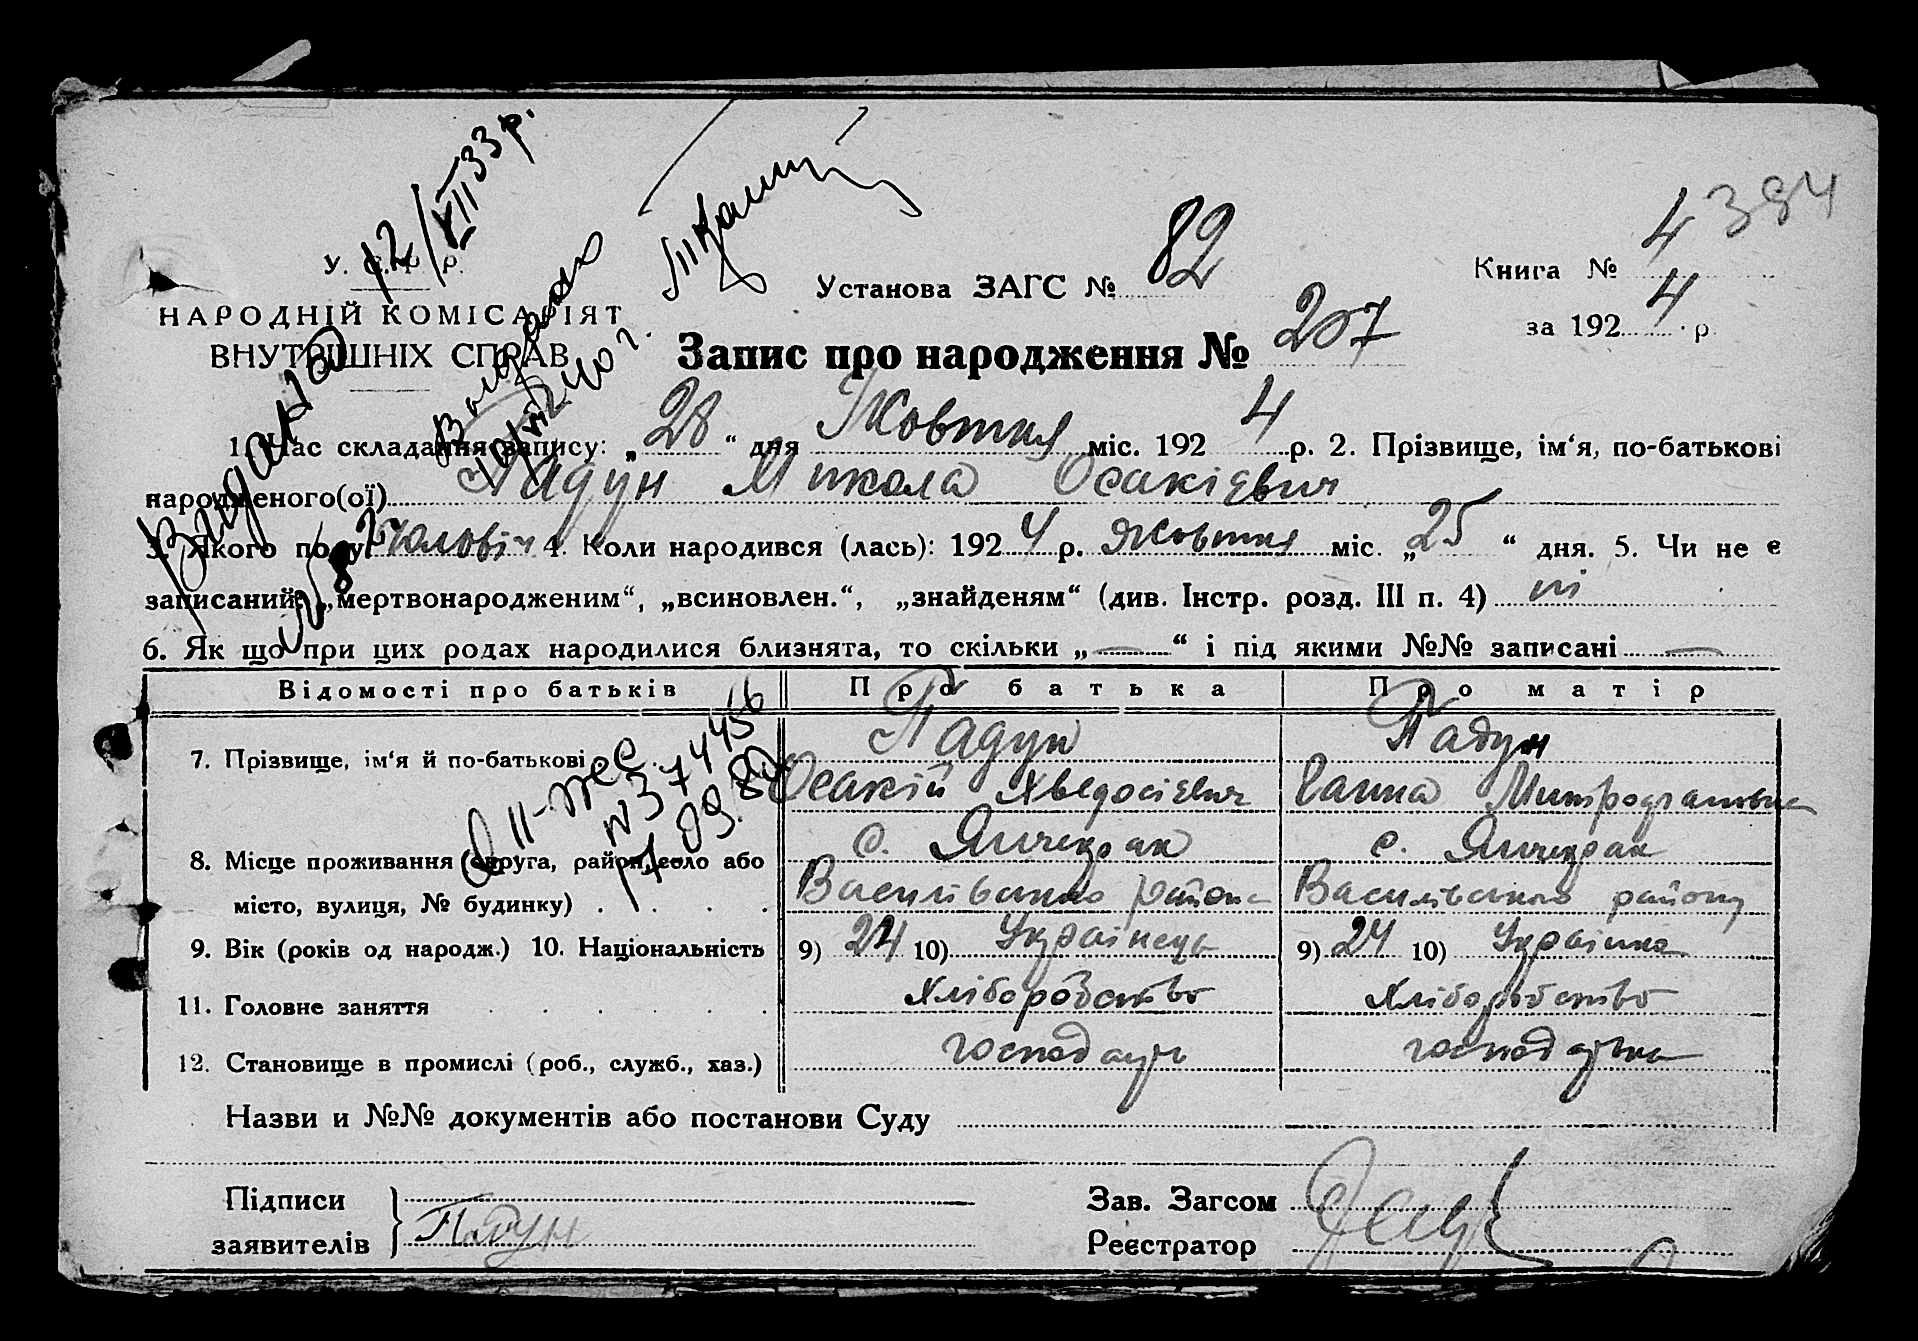 384
12/XII 33 р.
У. С. Р. Р.
НАРОДНІЙ КОМІСАРІЯТ
ВНУТРІШНІХ СПРАВ
Установа ЗАГС № 82
Книга № 4
за 192 4 р.
Запис про народження № 207
1. Час складання запису: „ 28 “ дня Жовтня міс. 192 4 р. 2. Прізвище, ім‘я, по-батькові
народженого(ої) Падун Микола Осакієвич
3. Якого полу: чоловіч 4. Коли народився (лась): 192 4 р. Жовтня міс. „ 25 “ дня. 5. Чи не є
записаний: „мертвонародженим“, „всиновлен.“, „знайденям“ (див. Інстр. розд. III п. 4) ні
6. Як що при цих родах народилися близнята, то скільки „ — “ і під якими №№ записані —
Відомості про батьків Про батька Про матір
7. Прізвище, ім‘я й по-батькові Падун Падун
Осакій Хведосієвич Ганна Митрофановна
8. Місце проживання (округа, район, село або с. Янчекрак с. Янчекрак
місто, вулиця, № будинку) Василівського району Василівського району
9. Вік (років од народж.) 10. Національність 9) 24 10) Українець 9) 24 10) Українка
11. Головне заняття Хліборобство Хліборобство
12. Становище в промислі (роб., служб., хаз.) господарь господарька
Назви и №№ документів або постанови Суду
Підписи
заявителів Падун
Зав. Загсом
Реєстратор
Видана
II-ЖС
№ 374456